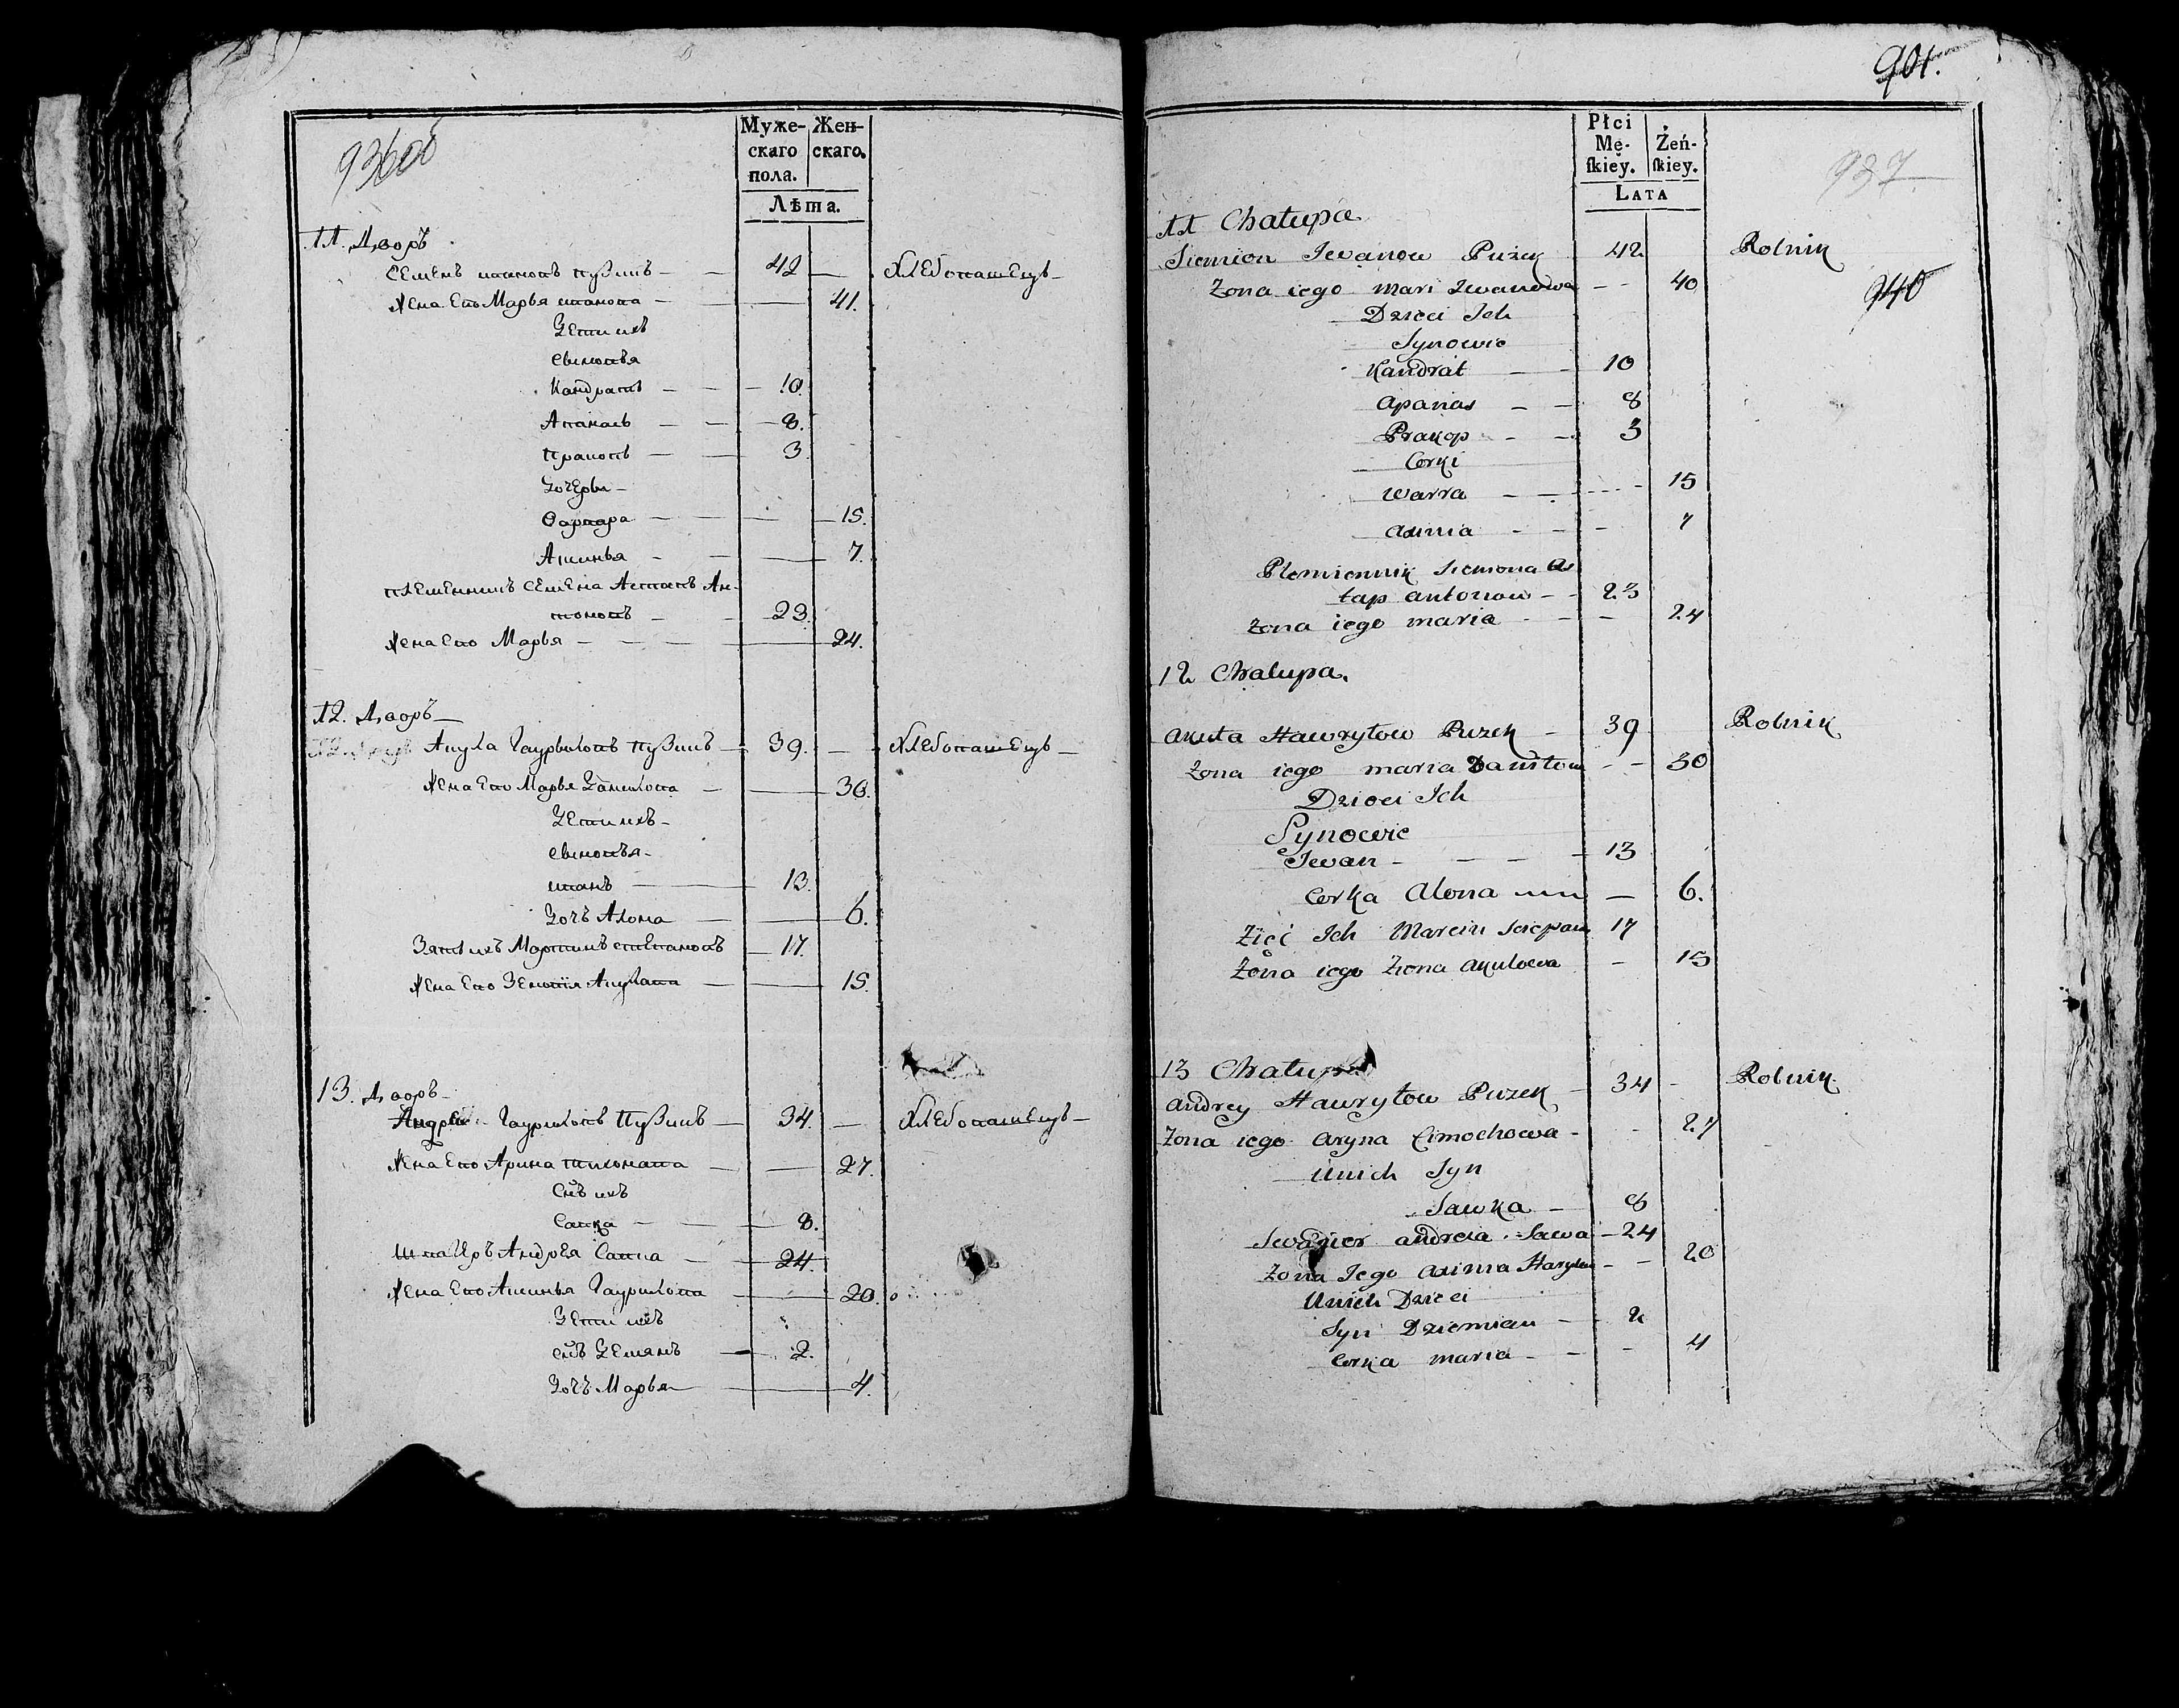 936об
Муже- Жен-
скаго скаго.
пола.
Лѣта.
11. Дворъ
Семенъ ивановъ пузикъ — 42 — Хлебопашецъ —
Жена Его Марья иванова — 41.
Дети ихъ
Сыновья
Кандратъ — 10.
Апанасъ — 8.
прапопъ — 3.
Дочери —
Варвара — 15.
Аксинья — 7.
племенникъ Семена Астапъ Ан-
тоновъ — 23.
Жена Его Марья — 24.
12. Дворъ —
Акула Гаурыловъ пузикъ — 39. — Хлебопашецъ —
Жена Его Марья Данилова — 30.
Дети ихъ —
Сыновья —
иванъ — 13.
Дочъ Алона — 6.
Зять ихъ Мартинъ степановъ — 17.
Жена Его Зеновія Акулава — 15.
13. Дворъ —
Андрей Гауриловъ пузикъ — 34. — Хлебопашецъ —
Жена Его Арина тихонава — 27.
Снъ ихъ
Савка — 8.
Швагеръ Андрея Савка — 24.
Жена Его Аксинья Гаурилова — 20.
Дети ихъ
снъ Демянъ — 2.
Дочъ Марья — 4.
901.
Płci
Mę- Żeń-
ſkiey. ſkiey.
Lata
937
940
11 Chałupa
Siemion Iwanow Puzek 42 Rolnik
Zona iego Mari Iwanowa - - 40
Dzieci Ich
Synowie
Kandrat — 10
Apanas — 8
Prakop — 3
Corki
Warra — 15
Axinia — 7
Plemiennik Siemiona As
tap Antonow - - 23
Zona iego Maria - - 24
12 Chałupa.
Akuła Hawryłow Puzek - 39 Rolnik
Zona iego Maria Daniłow - - 30
Dzieci Ich
Synowie
Iwan — 13
Corka Alona — 6.
Zięć Ich Marcin Sciepan 17
Zona iego Ziena Akułowa - 15
13 Chałupa
Andrey Hawryłow Puzek - 34 - Rolnik
Zona iego Aryna Cimochowa - - 27
Unich Syn
Sawka — 8
Swagier Andreia Sawa - 24
Zona Iego Axinia Haryłow - - 20
Unich Dzieci
Syn Dziemian - 2
Corka Maria - - 4